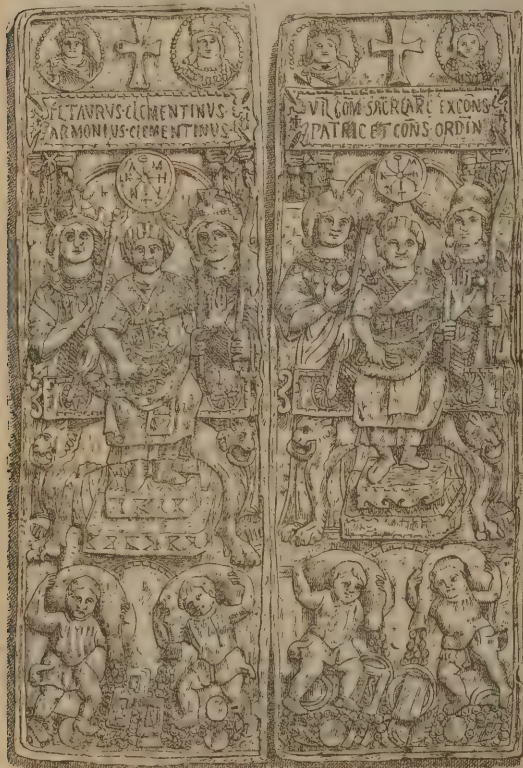 FL TAVRVS CLEMENTINVS
ARMONIVS CLEMENTINVS
VIL COM SACR LARC EX CONS
PATRIC ET CONS ORDIN